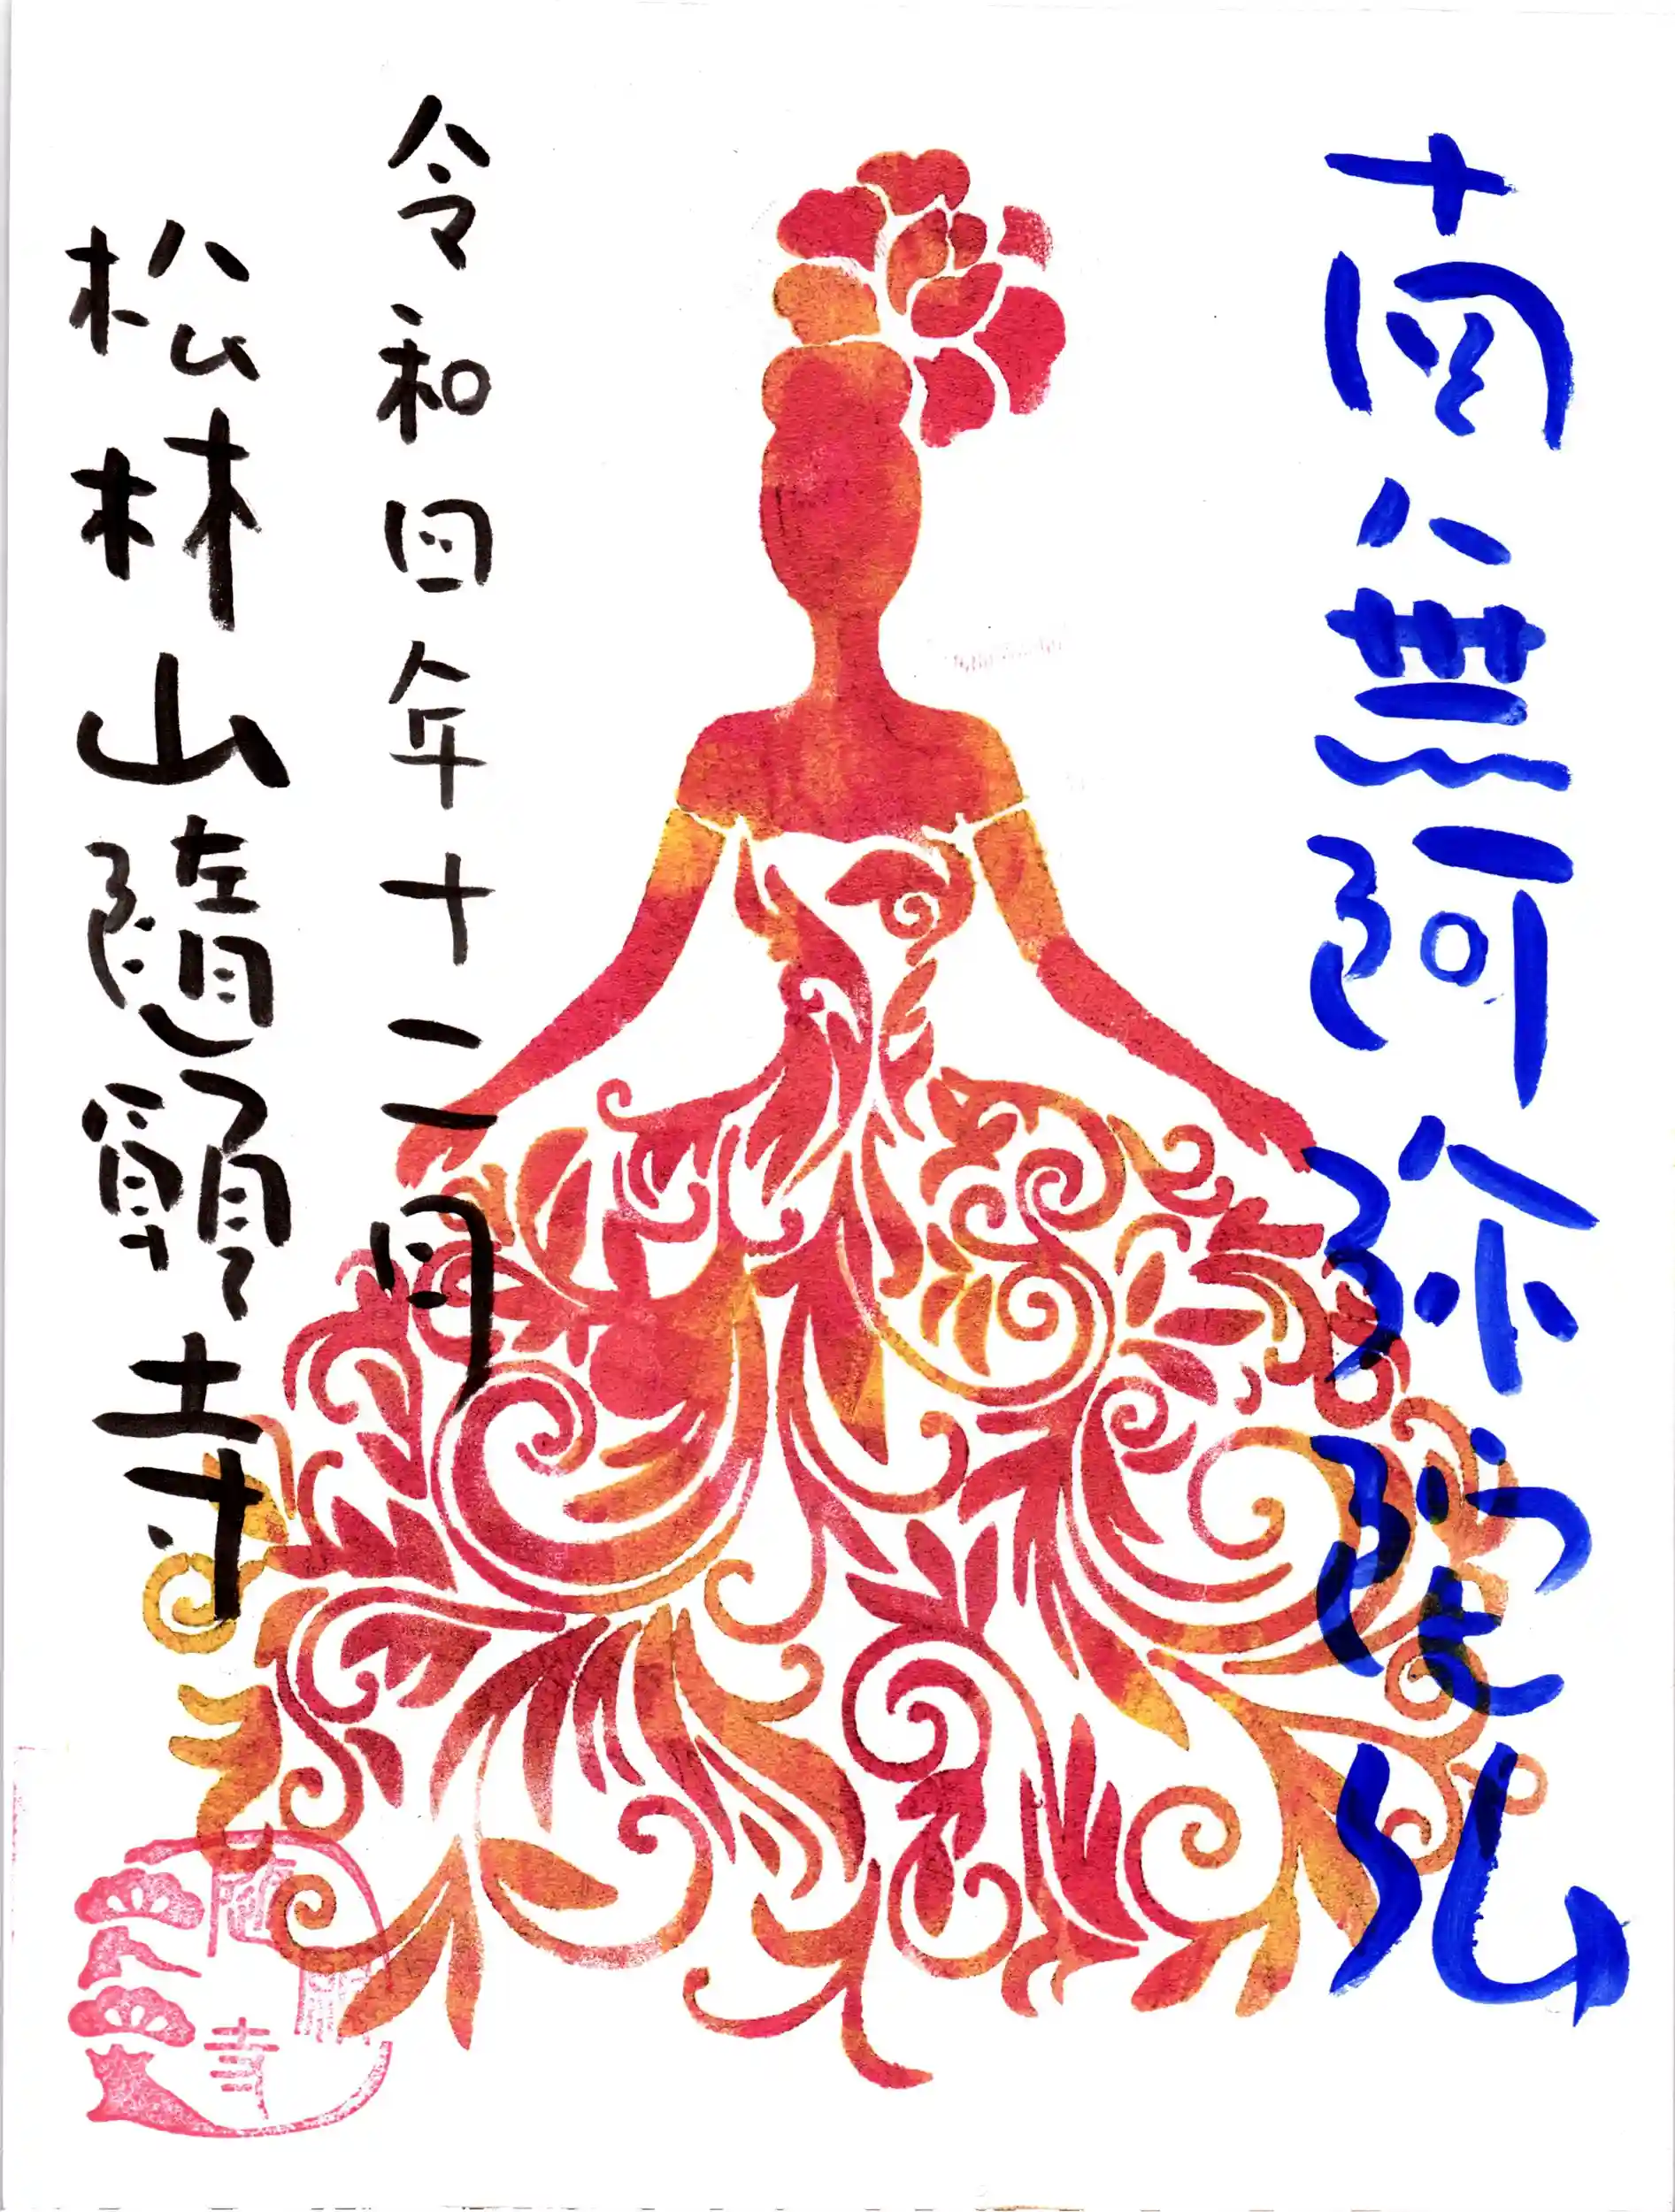 南無阿弥陀仏
令和四年十二月
松林山隨願寺